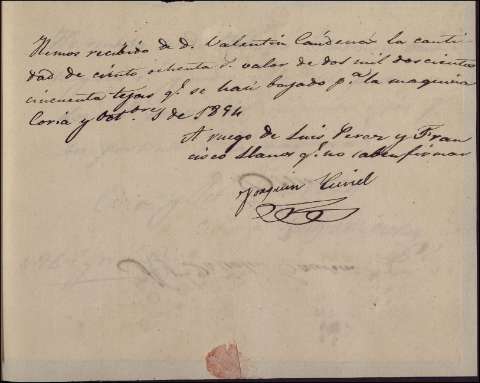 Hemos recibido de d. Valentin Cárdenas la canti-
dad de ciento ochenta r. valor de dos mil doscientas
cincuenta tejas q.e se han bajado p.a la maquina
Coria y Octubre 1 de 1894
A ruego de Luis Perez y Fran
cisco Llanos q.e no saben firmar
Joaquin